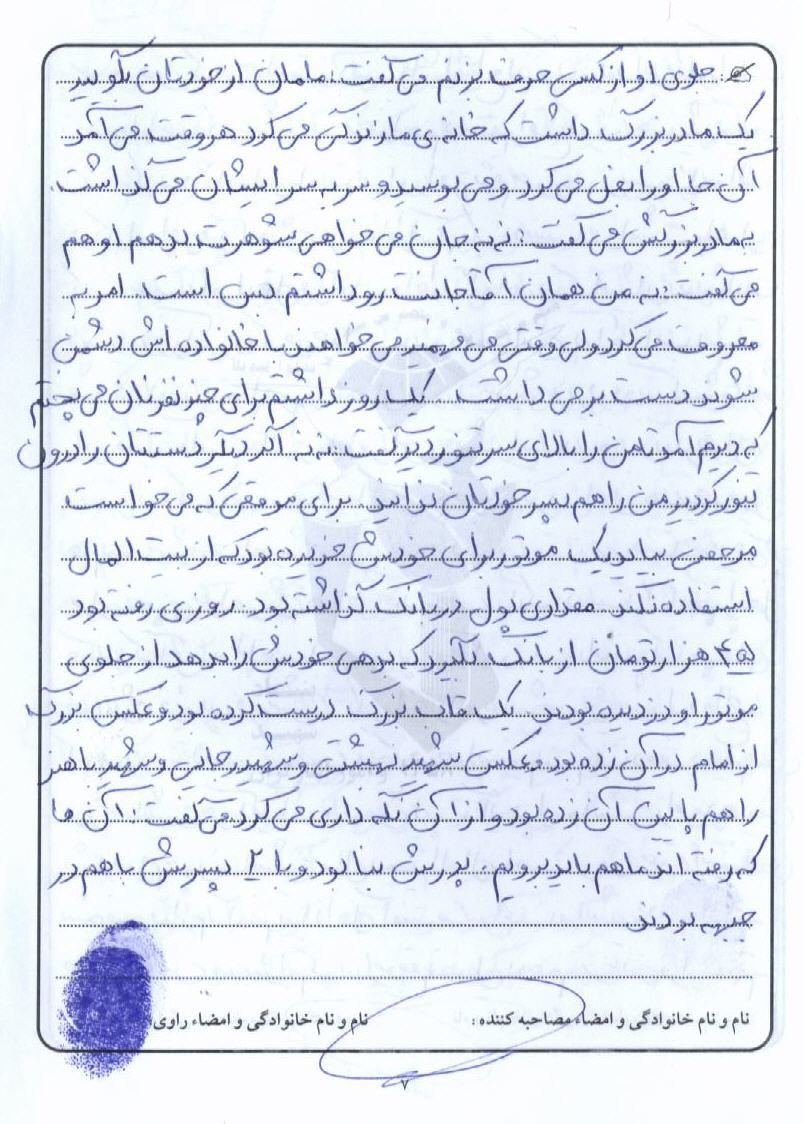 جلوی او از کسی حرف بزنم می گفت: مامان از خودتان بگویید
یک مادربزرگ داشت که خانه ی ما زندگی می کرد هر وقت می آمد
آن جا او را بغل می کرد و می بوسید و سر به سر ایشان می گذاشت.
به مادربزرگش می گفت: ننه جان می خواهی شوهرت بدهم او هم
می گفت: نه من همان آقا جانت رو داشتم بس است. امر به
معروف می کرد ولی وقتی می فهمید می خواهند با خانواده اش دشمن
شوند دست برمی داشت. یک روز داشتم برای چند نفر نان می پختم
که دیدم آمد تا من را بالای سر تنور دید گفت: ننه اگر دیگر دستتان را درون
تنور کردید من را هم پسر خودتان ندانید. برای موقعی که می خواست
مرخصی بیاید یک موتور برای خودش خریده بود که از بیت المال
استفاده نکند مقداری پول در بانک گذاشته بود. روزی رفته بود
۴۵ هزار تومان از بانک بگیرد که بدهی خودش را بدهد از جلوی
موتور او دزدیده بودند. یک قاب بزرگ درست کرده بود و عکس بزرگ
از امام در آن زده بود و عکس شهید بهشتی و شهید رجایی و شهید باهنر
را هم پایین آن زده بود و از آن نگه داری می کرد می گفت: آن ها
که رفته اند ما هم باید برویم. پدرش بنا بود و با ۲ پسرش با هم در
جبهه بودند
نام و نام خانوادگی و امضاء مصاحبه کننده :
نام و نام خانوادگی و امضاء راوی
۷